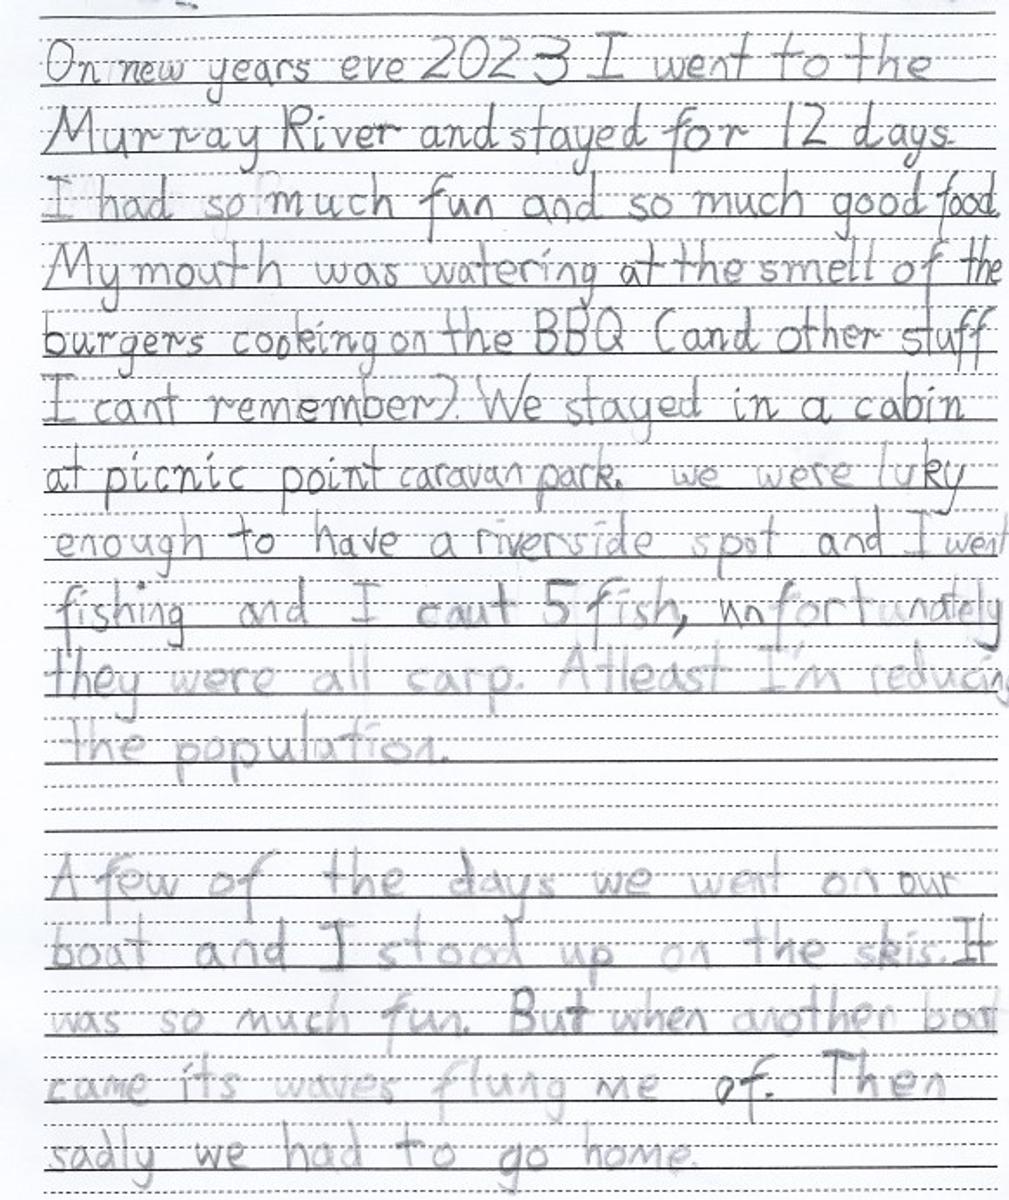 On new years eve 2023 I went to the
Murray River and stayed for 12 days.
I had so much fun and so much good food.
My mouth was watering at the smell of the
burgers cooking on the BBQ (and other stuff
I cant remember). We stayed in a cabin
at picnic point caravan park. we were luky
enough to have a riverside spot and I went
fishing and I caut 5 fish, unfortunately
they were all carp. Atleast I'm reducing
the population.
A few of the days we went on our
boat and I stood up on the skis. It
was so much fun. But when another boat
came its waves flung me of. Then
sadly we had to go home.